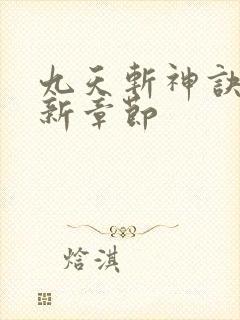 九天斬神訣
新章節
焓淇